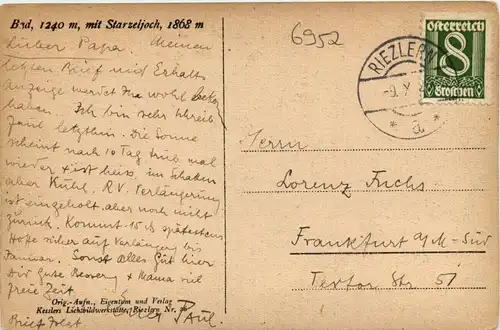 Bad, 1240 m, mit Starzeljoch, 1868 m
Lieber Papa. Meinen
letzten Brief und Erhalts
anzeige werdet Ihr wohl
haben. Ich bin sehr schreib
faul letzthin. Die Sonne
scheint nach 10 Tag trüb mal
wieder + ist heiss, im Schatten
aber kühl. R.V. Verlängerung
ist eingeholt, aber noch nicht
zurück. Kommt 15. spätestens
Hoffe sicher auf Verlängerg bis
Januar. Sonst alles Gut hier
Dir Gute Besserg + Mama viel
freie Zeit.
Euer Paul.
Brief folgt
Orig.-Aufn., Eigentum und Verlag
Kesslers Lichtbildwerkstätte, Riezlern Nr.
6952
RIEZLERN
-9.X
* a *
Österreich
8
Groschen
Herrn
Lorenz Fuchs
Frankfurt a/M-Süd
Textor Str. 51